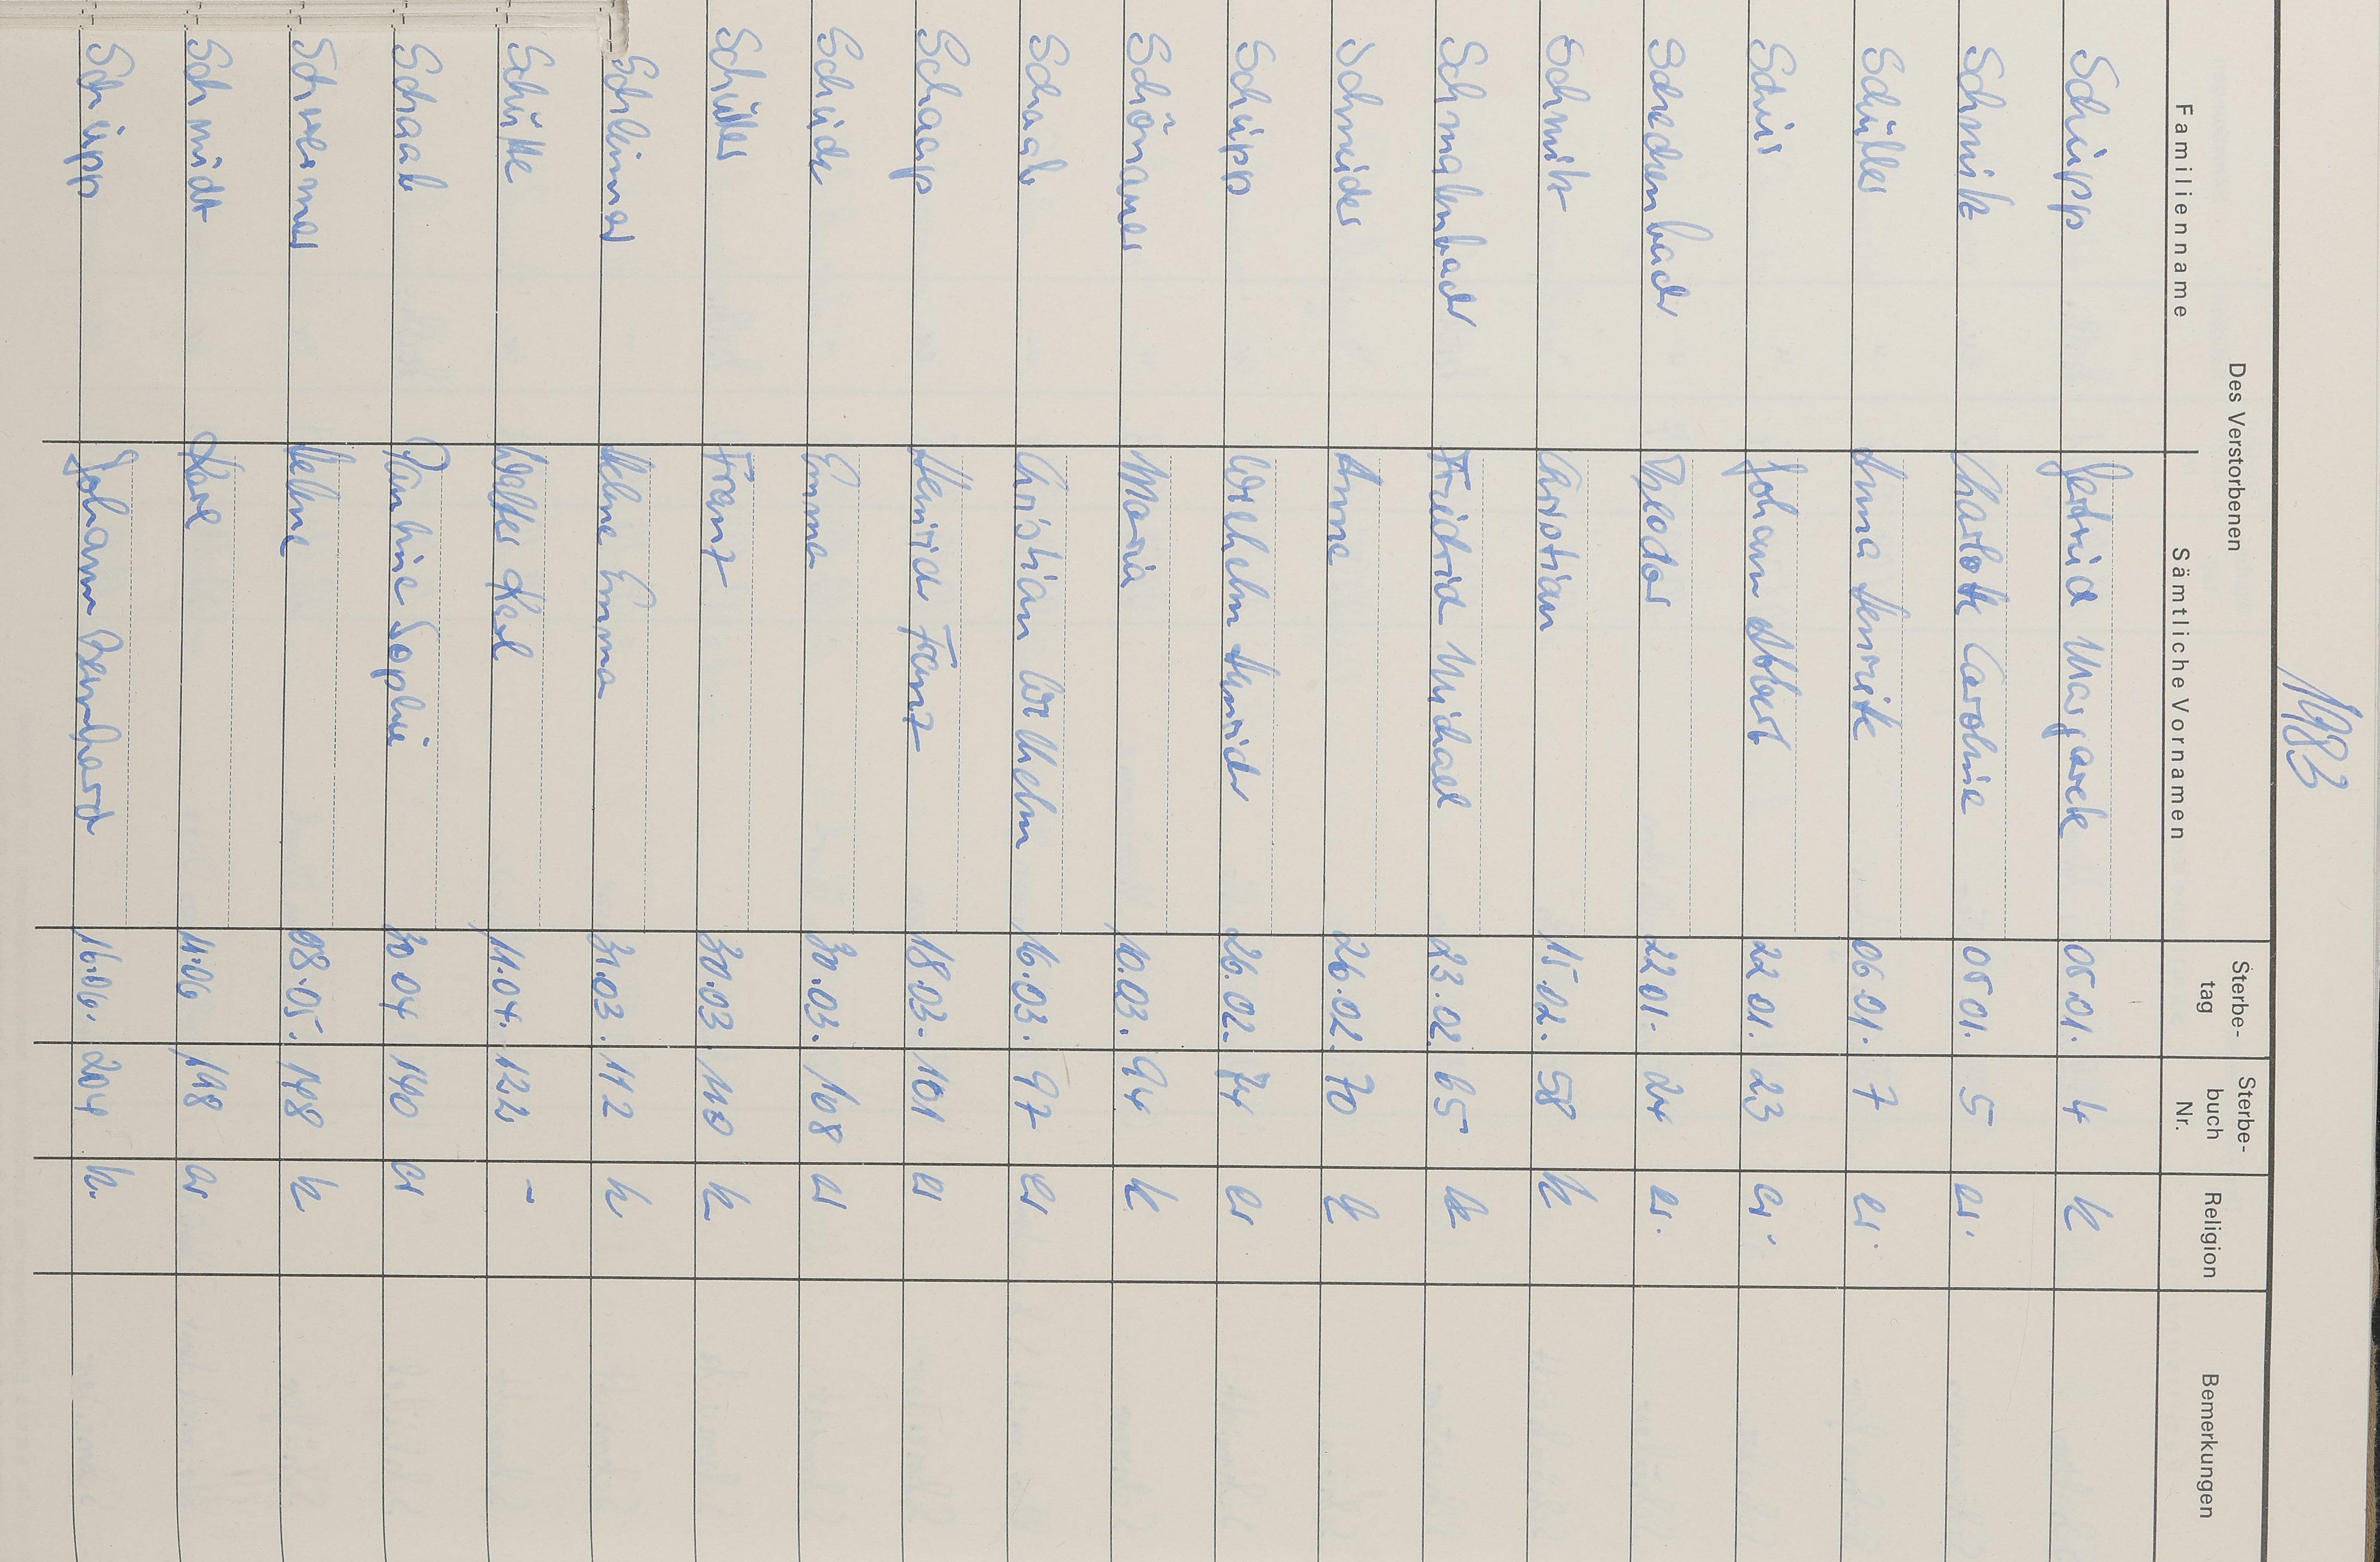 1983
Des Verstorbenen
Familienname Sämtliche Vornamen Sterbe-tag Sterbe-buch Nr. Religion Bemerkungen
Schüpp Gertrud Margarete 05.01. 4 k
Schmitz Charlotte Caroline 05 01. 5 ev.
Schüller Anna Henriette 06.01. 7 ev.
Johann Albert 22 01. 23 ev.
Theodor 22 01. 24 ev.
Schmitz Christian 15.02. 58 k
Schmalenbach Friedrich Michael 23.02. 65 k
Schneider Anna 26.02. 70 k
Schüpp Wilhelm Heinrich 26.02. 74 ev
Maria 10.03. 94 k
Schaab Christian Wilhelm 16.03. 97 ev
Schaap Heinrich Franz 18.03. 101 ev
Emma 30.03. 108 ev
Schüller Franz 30.03. 110 k
Helene Emma 31.03. 112 k
Schütte Walter Karl 11.04. 122 -
Schaab Pauline Sophie 30 04 140 ev
Helene 08.05. 148 k
Schmidt Karl 11.06 198 ev
Schüpp Johann Bernhard 16.06. 204 k.